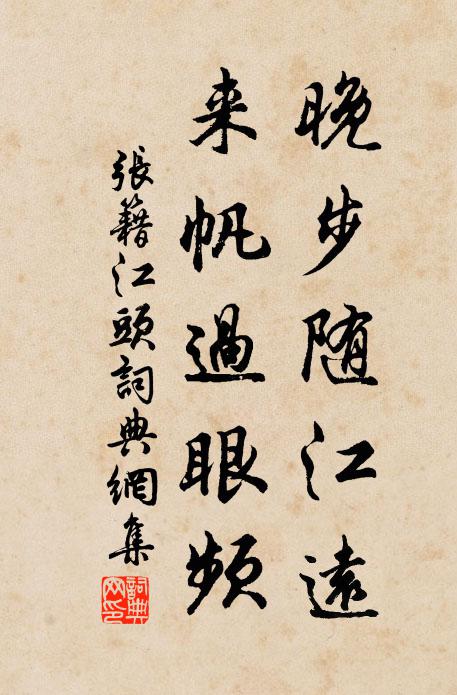 晚步随江遠
来帆過眼頻
張籍江頭詞典網集
詞典网印